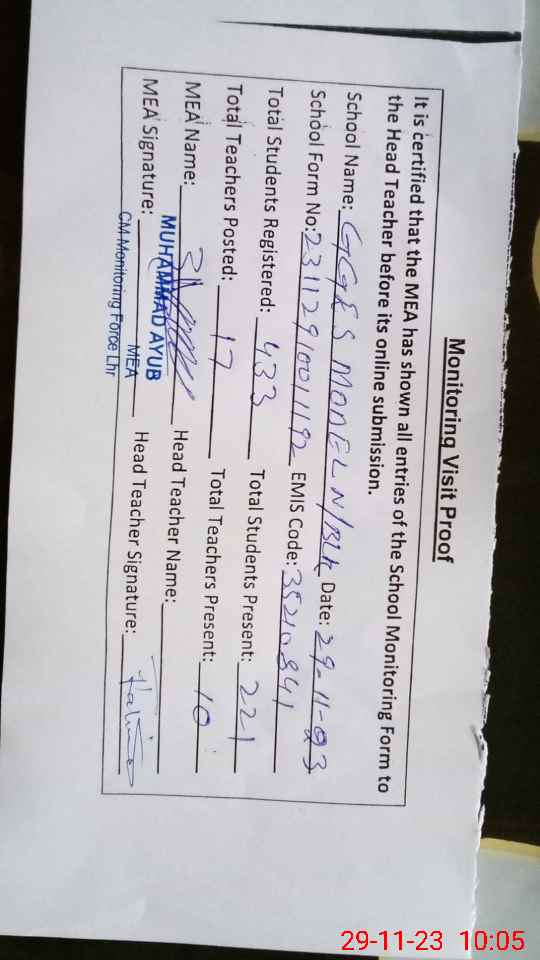 Monitoring Visit Proof
It is certified that the MEA has shown all entries of the School Monitoring Form to
the Head Teacher before its online submission.
School Name: GGES MODEL N/BLK Date: 29-11-23
School Form No: 2311291001192 EMIS Code: 35210841
Total Students Registered: 433 Total Students Present: 221
Total Teachers Posted: 17 Total Teachers Present: 10
MEA Name: Head Teacher Name:
MUHAMMAD AYUB
MEA Signature: MEA Head Teacher Signature:
CM Monitoring Force Lhr
29-11-23 10:05